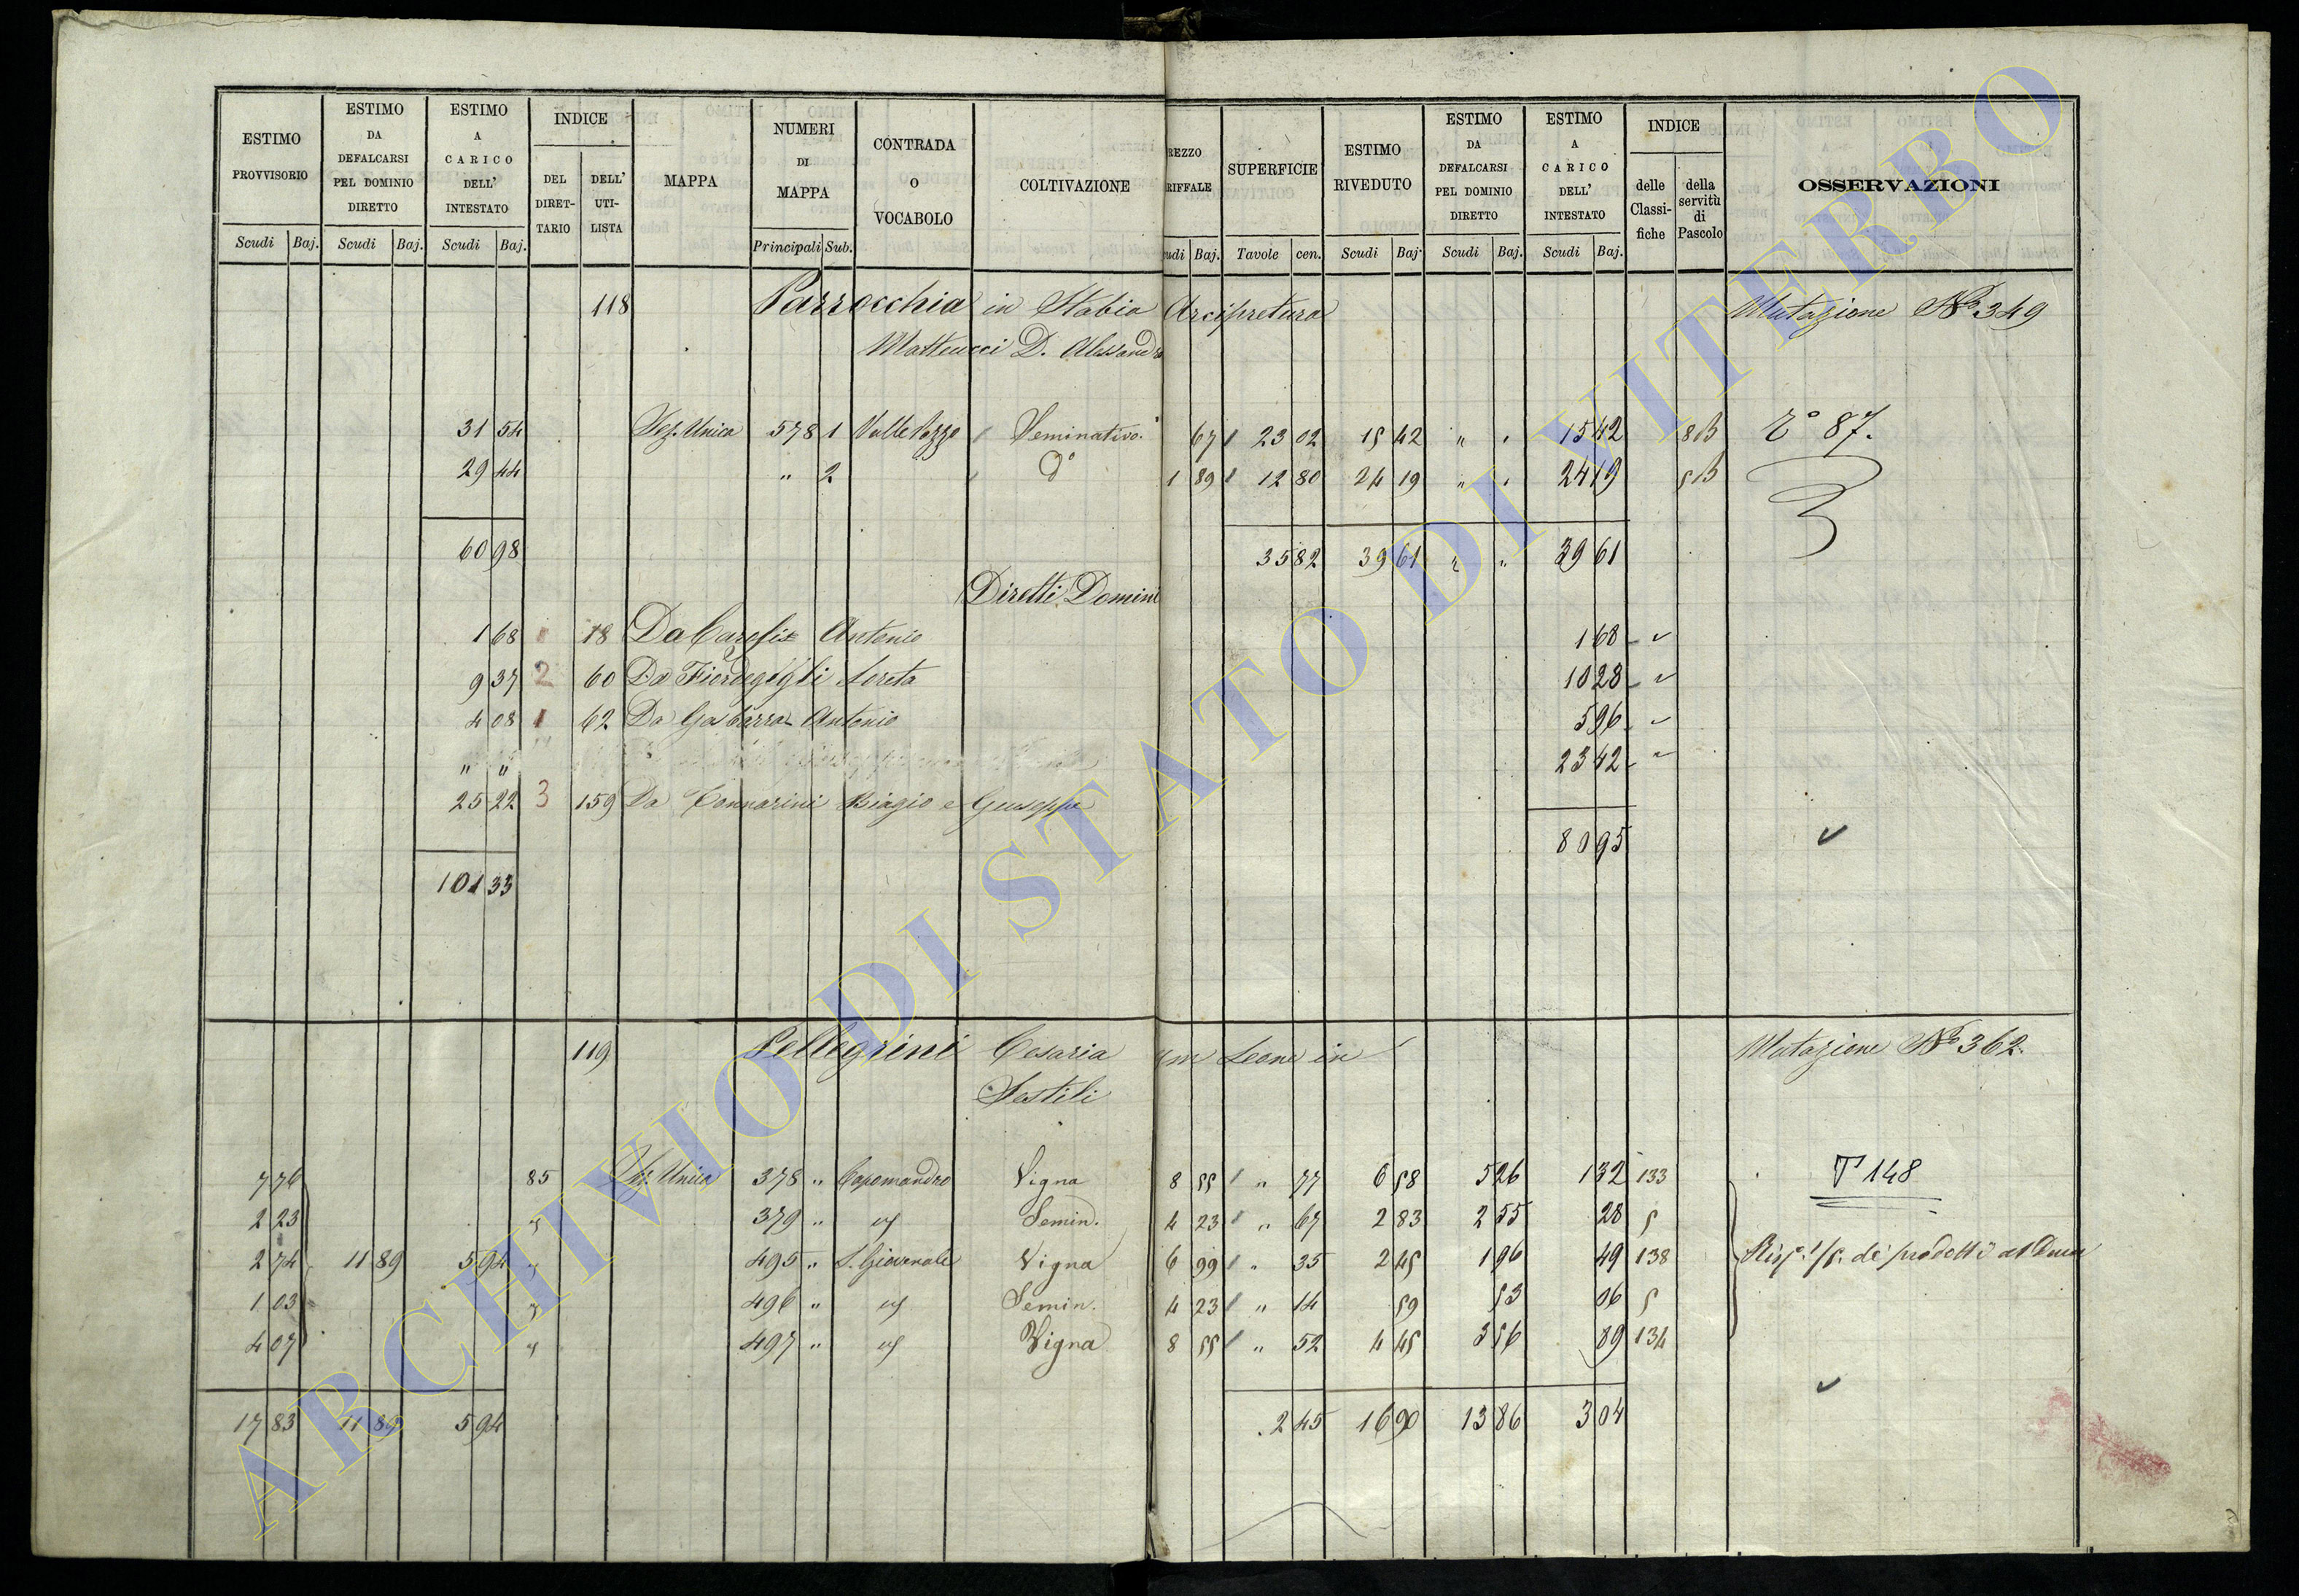 ESTIMO PROVVISORIO Scudi Baj.
ESTIMO DA DEFALCARSI PEL DOMINIO DIRETTO Scudi Baj.
ESTIMO A CARICO DELL' INTESTATO Scudi Baj.
INDICE DEL DIRET-TARIO DELL' UTI-LISTA
MAPPA
NUMERI DI MAPPA Principali Sub.
CONTRADA O VOCABOLO
COLTIVAZIONE
REZZO RIFFALE udi Baj.
SUPERFICIE Tavole cen.
ESTIMO RIVEDUTO Scudi Baj.
ESTIMO DA DEFALCARSI PEL DOMINIO DIRETTO Scudi Baj.
ESTIMO A CARICO DELL' INTESTATO Scudi Baj.
INDICE delle Classi-fiche della servitù di Pascolo
OSSERVAZIONI
118 Parrocchia in Stabia Arcipretura Mutazione N° 349
Matteucci D. Alessandro
31 54 Sez. Unica 578 1 Valle Pozzo Seminativo 67 23 02 15 42 " " 15 42 8B 87.
29 44 " 2 d° 1 89 12 80 24 19 " " 24 19 5B
60 98 35 82 39 61 " " 39 61
Diretti Domini
1 68 1 18 Da Antonio 1 68
9 37 2 60 Da Loreta 10 28
4 08 1 62 Da Antonio 5 96
" " 23 42
25 22 3 159 Da Connarini Biagio e Giuseppe
80 95
101 33
119 Pellegrini Cesaria in Mutazione N° 362.
Sestili
7 76 85 Sez. Unica 378 " Capomandro Vigna 8 55 " 77 6 58 5 26 1 32 133 T 148
2 23 " 379 " Semin. 4 23 " 67 2 83 2 55 28 5
2 74 11 89 5 94 " 495 " S. Giovenale Vigna 6 99 " 35 2 45 1 96 49 138
1 03 " 496 " Semin. 4 23 " 14 59 53 06 5
4 07 " 497 " Vigna 8 55 " 52 4 45 3 56 89 134
17 83 11 89 5 94 2 45 16 90 13 86 3 04
ARCHIVIO DI STATO DI VITERBO